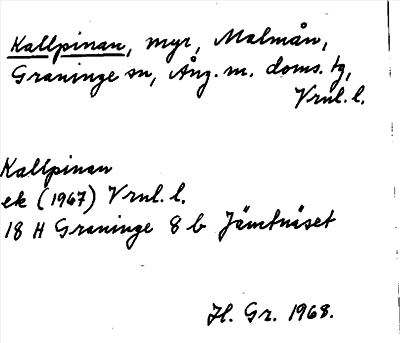 Kallpinan, myr, Malmån,
Graninge sn, Ång. m. doms. tg,
Vrnl. l.
Kallpinan
ek (1967) Vrnl. l.
18 H Graninge 8 b Jämtnäset
H. Gr. 1968.